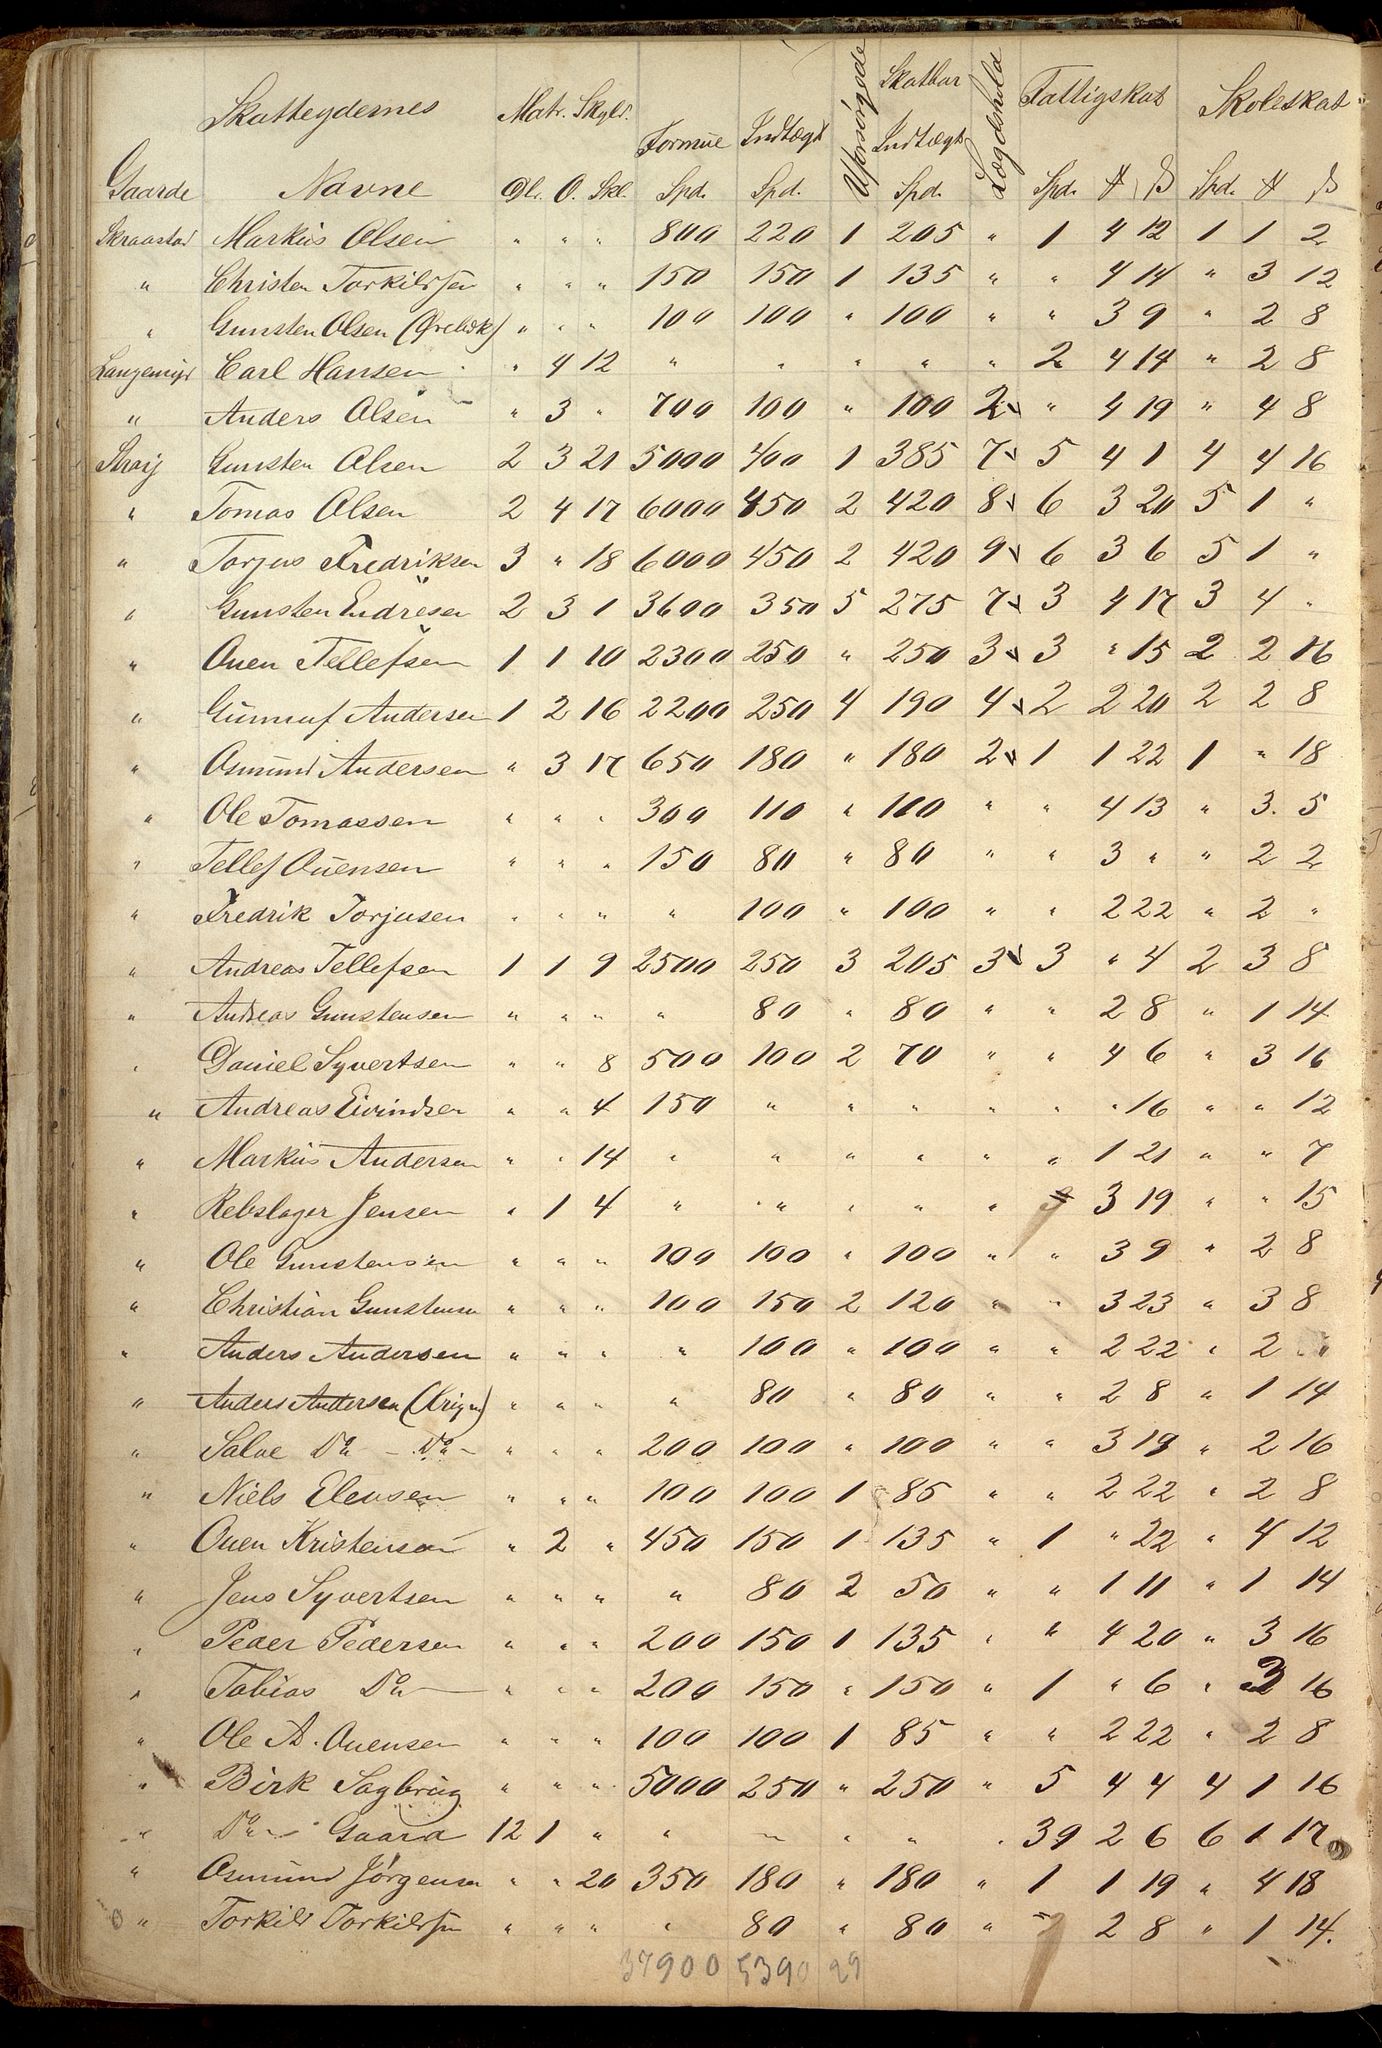 Gaarde Skatteydernes Navne Matr. Skyld. Dl. O. Skl. Formue Spd. Indtægt Spd. Uforsørgede Skatbar Indtægt Spd. Lægdshold Fattigskat Spd. ₰ ß Skoleskat Spd. ₰ ß
Skraastad Markus Olsen " " " 800 220 1 205 " 1 4 12 1 1 2
" Christen Torkildsen " " " 150 150 1 135 " " 4 14 " 3 12
" Gunsten Olsen (Ørebæk) " " " 100 100 " 100 " " 3 9 " 2 8
Langemyr Carl Hansen " 4 12 " " " " " 2 4 14 " 2 8
" Anders Olsen " 3 " 700 100 " 100 2 " 4 19 " 4 8
Straij Gunsten Olsen 2 3 21 5000 400 1 385 7 5 4 1 4 4 16
" Tomas Olsen 2 4 17 6000 450 2 420 8 6 3 20 5 1 "
" Torjus Fredriksen 3 " 18 6000 450 2 420 9 6 3 6 5 1 "
" Gunsten Endresen 2 3 1 3600 350 5 275 7 3 4 17 3 4 "
" Ouen Tellefsen 1 1 10 2300 250 " 250 3 3 " 15 2 2 16
" Gunnuf Andersen 1 2 16 2200 250 4 190 4 2 2 20 2 2 8
" Osmund Andersen " 3 17 650 180 " 180 2 1 1 22 1 " 18
" Ole Tomassen " " " 300 110 " 110 " " 4 13 " 3. 5
" Tellef Ouensen " " " 150 80 " 80 " " 3 " " 2 2
" Fredrik Torjusen " " " " 100 " 100 " " 2 22 " 2 "
" Andreas Tellefsen 1 1 9 2500 250 3 205 3 3 " 4 2 3 8
" Andreas Gunstensen " " " " 80 " 80 " " 2 8 " 1 14
" Daniel Syvertsen " " 8 500 100 2 70 " " 4 6 " 3 16
" Andreas Eivindsen " " 4 150 " " " " " " 16 " " 12
" Markus Andersen " " 14 " " " " " " 1 21 " " 7
" Rebslager Jensen " 1 4 " " " " " 3 19 " " 15
" Ole Gunstensen " " " 100 100 " 100 " " 3 9 " 2 8
" Christian Gunstensen " " " 100 150 2 120 " " 3 23 " 3 8
" Anders Andersen " " " " 100 " 100 " " 2 22 " 2 "
" Anders Andersen () " " " " 80 " 80 " " 2 8 " 1 14
" Salve Do - Do - " " " 200 100 " 100 " " 3 19 " 2 16
" Niels Elevsen " " " 100 100 1 85 " " 2 22 " 2 8
" Ouen Kristensen " 2 " 450 150 1 135 " 1 " 22 " 4 12
" Jens Syvertsen " " " " 80 2 50 " " 1 11 " 1 14
" Peder Pedersen " " " 200 150 1 135 " " 4 20 " 3 16
" Tobias Do " " " 200 150 " 150 " 1 " 6 " 3 16
" Ole A. Ouensen " " " 100 100 1 85 " " 2 22 " 2 8
" Birk Sagbrug " " " 5000 250 " 250 " 5 4 4 4 1 16
" Do Gaard 12 1 " " " " " " 39 2 6 6 1 17
" Osmund Jørgensen " " 20 350 180 " 180 " 1 1 19 " 4 18
" Torkild Torkildsen " " " " 80 " 80 " 2 8 " 1 14.
37900 5390 29